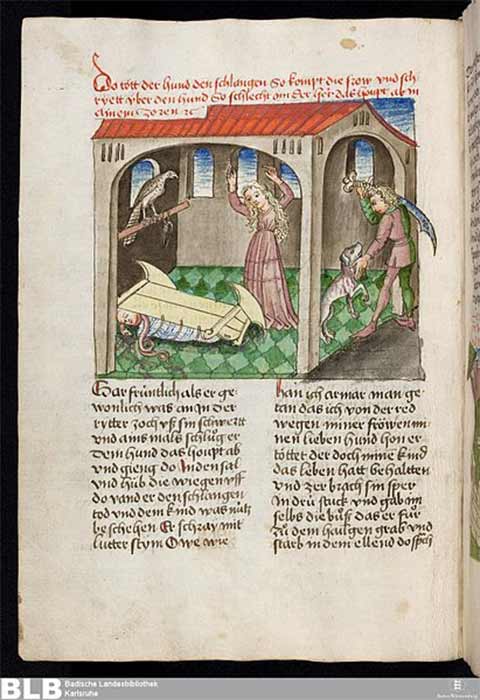 Do tött der hund den schlangen So kompt die frow vnd sch-
ryett vber den hund So schlecht im der her das houpt ab in
einem zoren ꝛc
Gar früntlich als er ge-
wonlich was an In der
rytter zoch vß sin schwertt
vnd ains mals schlůg er
dem hund das houpt ab
vnd gieng do In den sal
vnd hůb die wiegen vff
do vand er den schlangen
tod vnd dem kind was nütz
beschehen Er schray mit
lutter stym O we wie
han ich armar man ge-
tan das ich von der red
wegen miner fröwen mi-
nen lieben hund hon er-
töttet der doch mine kind
das leben hatt behaltten
vnd zerbrach sin sper
in drü stuck vnd gab im
selbs die bůß das er für
zů dem hailgen grab vnd
starb in dem ellend do sprch
BLB Badische Landesbibliothek
Karlsruhe